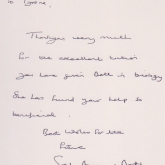 to
Thankyou very much
for the excellent tuition
you have given Beth in biology
She has found your help so
beneficial.
Best Wishes for the
Future